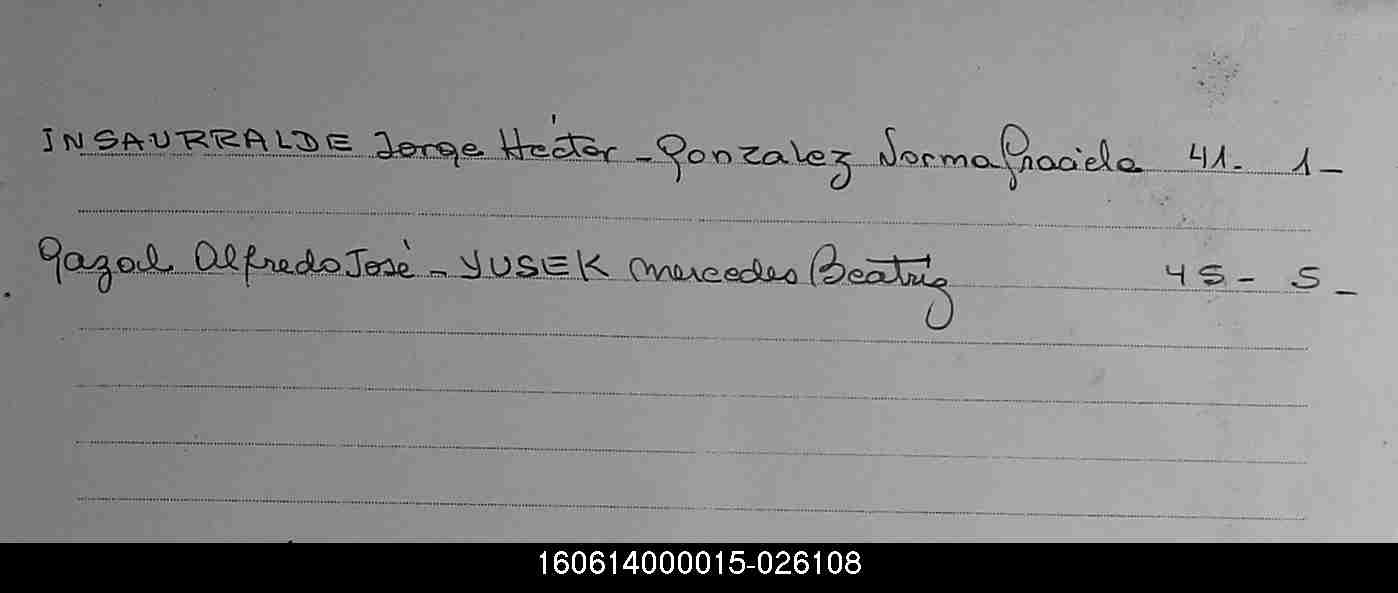 INSAURRALDE Jorge Héctor - Gonzalez Norma Graciela 41- 1-
Gazal Alfredo José - YUSEK Mercedes Beatriz 45- 5-
160614000015-026108